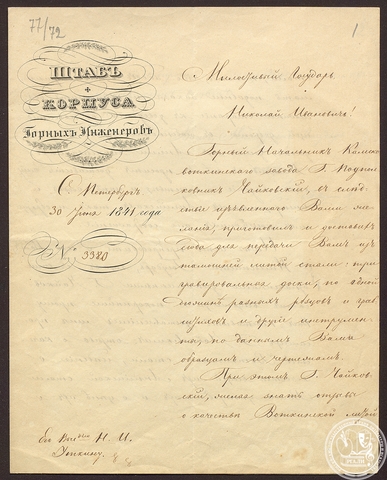 77/72
1
Штабъ
Корпуса
Горныхъ Инженеровъ
С. Петербургъ
30 Іюня 1841 года
№. 3380
Милостивый Государь,
Николай Ивановичъ!
Горный Начальникъ Камско-
воткинскаго завода Г. Подпол-
ковникъ Чайковскій, въ слѣд-
ствіе изъявленнаго Вами же-
ланія, приготовилъ и доставилъ
сюда для передачи Вамъ изъ
тамошней литой стали: три
гравировальныя доски, по одной
дюжинѣ разныхъ рѣзцовъ и граб-
штихелей и другіе инструмен-
ты, по даннымъ Вами
образцамъ и чертежамъ.
При этомъ Г. Чайков-
скій, желая знать отзывъ
о качествѣ Воткинской литой
Его Выс. Н. И.
Уткину